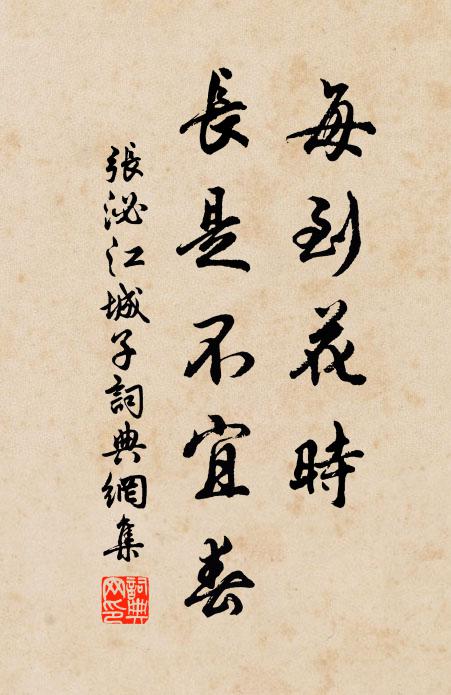 每到花時
長是不宜春
張泌江城子詞典網集
詞典
网印